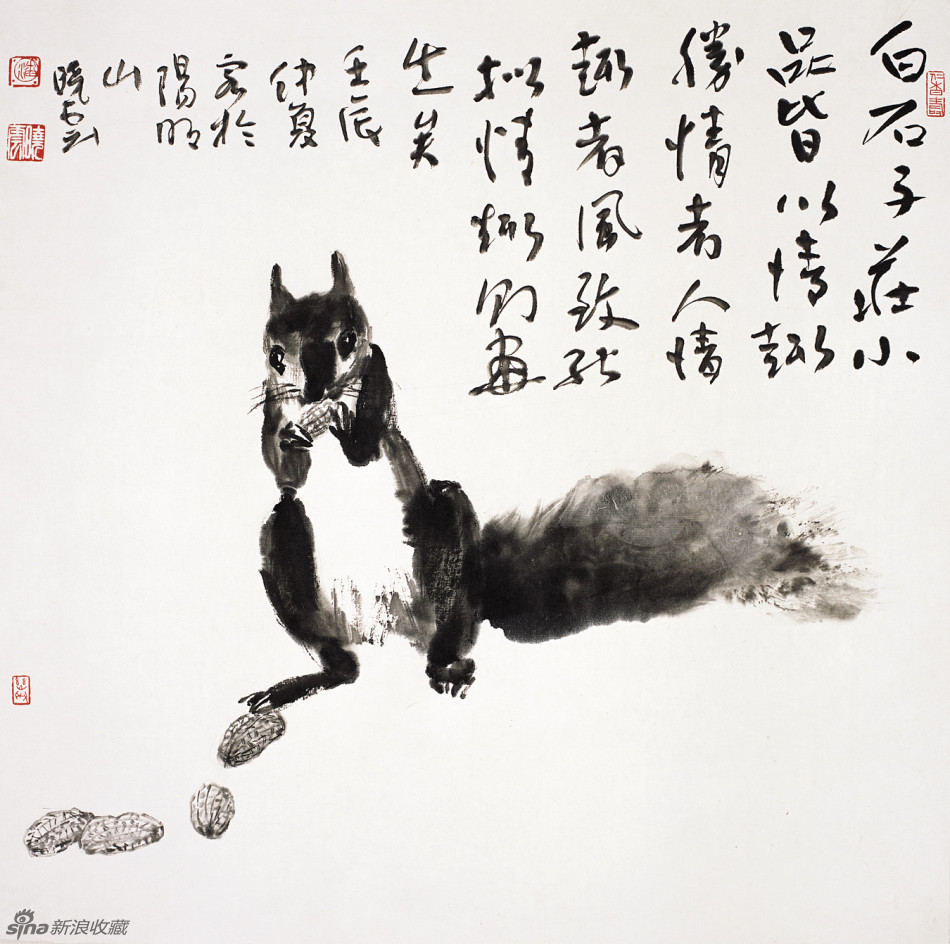 白石子莊小
品皆以情趣
勝情者人情
趣者風致能
拟情趣則畫
生矣
壬辰
仲夏
客於
陽明
山
曉雲
sina新浪收藏